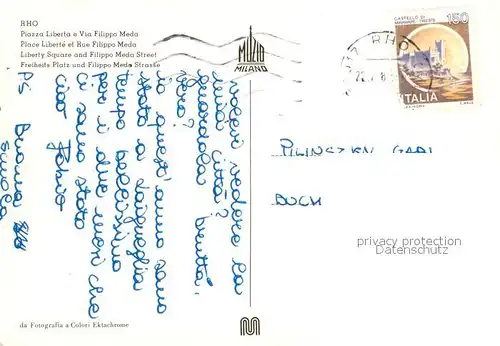 RHO
Piazza Libertà e Via Filippo Meda
Place Liberté et Rue Filippo Meda
Liberty Square and Filippo Meda Street
Freiheits Platz und Filippo Meda Strasse
MUZIO
MILANO
RHO
CASTELLO DI
MIRAMARE TRIESTE
150
ITALIA
volevi vedere la
mia città?
guardala brutta.
vero?
io quest'anno sono
stato a laigueglia
tempo bellissimo
per i due mesi che
ci sono stato
ciao Fabio
PS Buona
scuola
BUCH
privacy protection
Datenschutz
da Fotografia a Colori Ektachrome